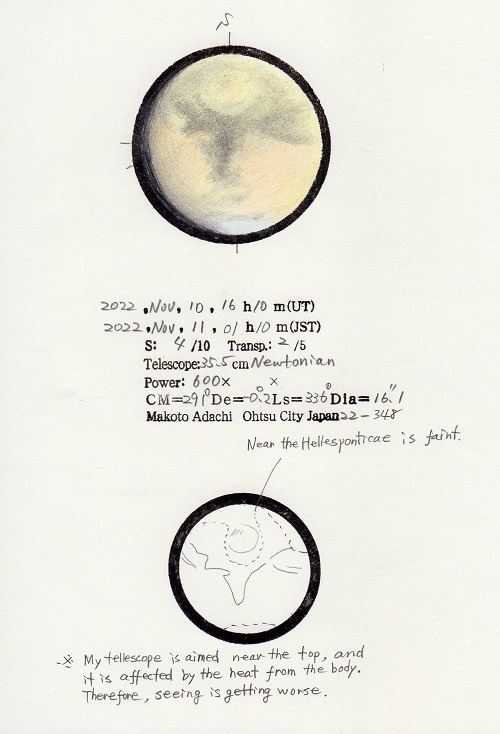 S
2022, Nov, 10, 16 h 10 m (UT)
2022, Nov, 11, 01 h 10 m (JST)
S: 4 /10 Transp.: 2 /5
Telescope: 35.5 cm Newtonian
Power: 600× ×
CM=291° De=-0.2° Ls=336° Dia=16.1"
Makoto Adachi Ohtsu City Japan 22-348
Near the Hellesponticae is faint.
※ My tellescope is aimed near the top, and
it is affected by the heat from the body.
Therefore, seeing is getting worse.